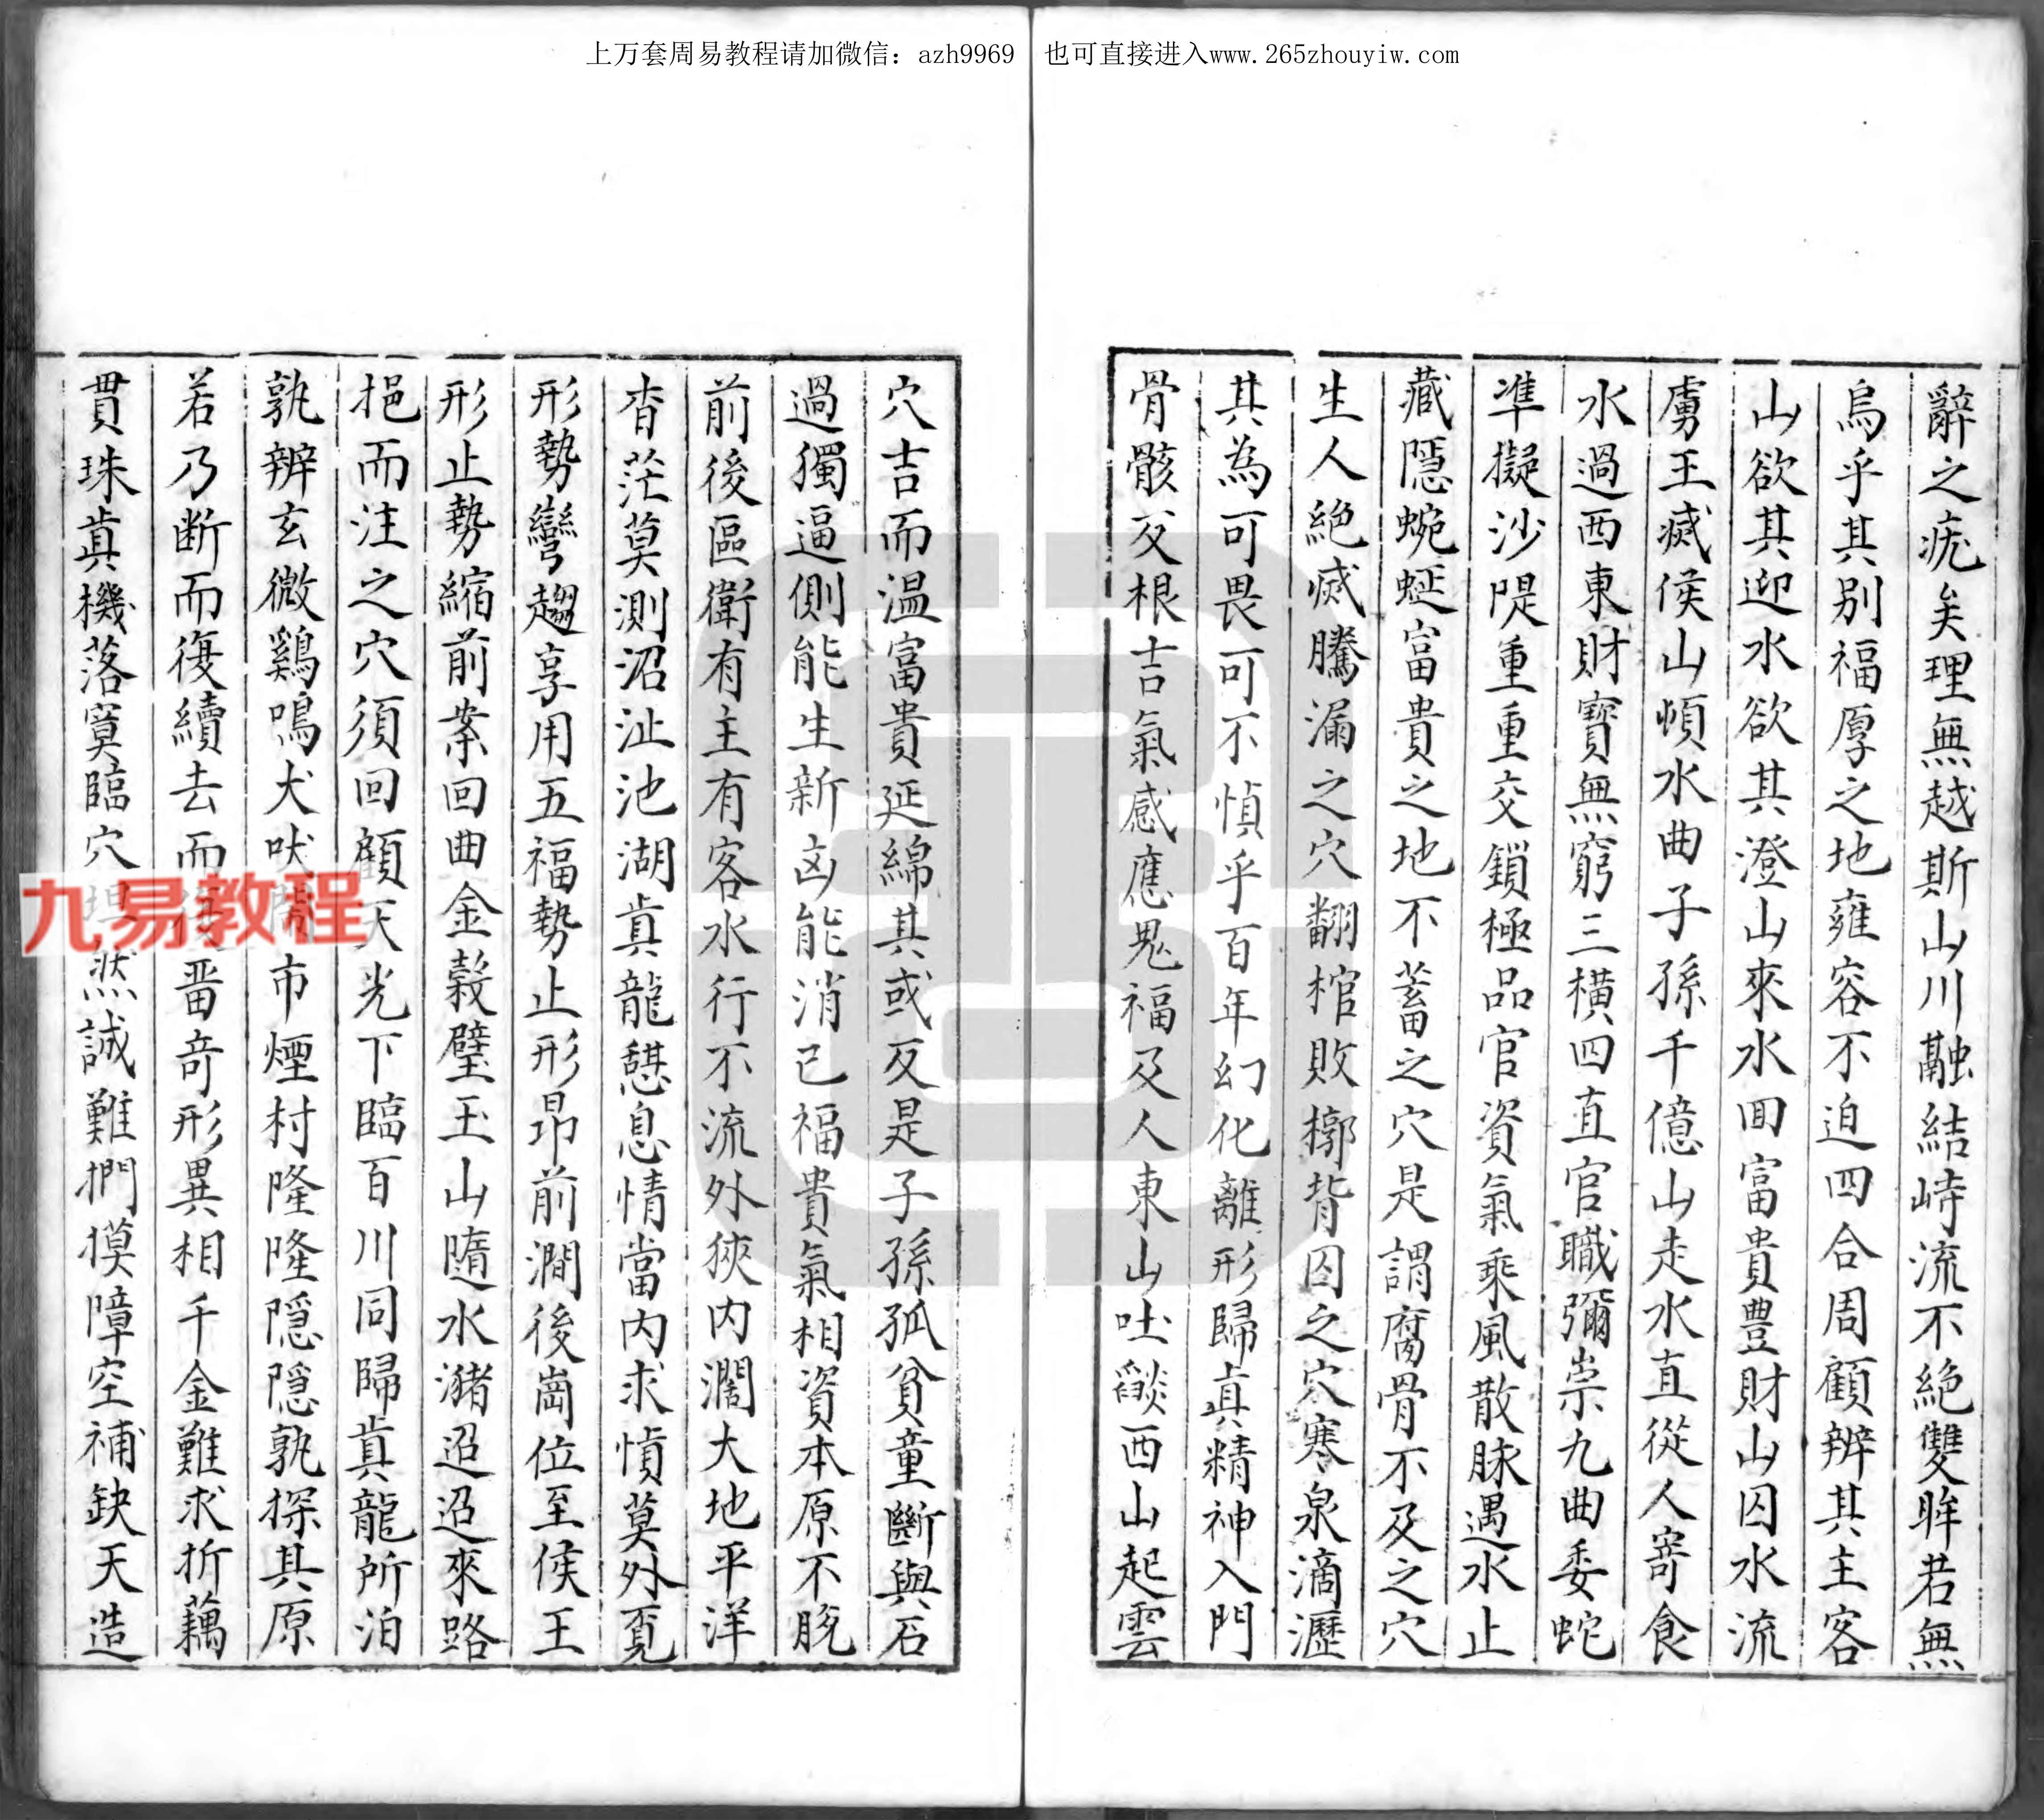 上万套周易教程请加微信：azh9969　也可直接进入www.265zhouyiw.com
辭之疣矣理無越斯山川融結峙流不絶雙眸若無
烏乎其别福厚之地雍容不迫四合周顧辨其主客
山欲其迎水欲其澄山來水回富貴豊財山囚水流
虜王滅侯山頓水曲子孫千億山走水直從人寄食
水過西東財寶無窮三横四直官職彌崇九曲委蛇
準擬沙隄重重交鎖極品官資氣乘風散脉遇水止
藏隱蜿蜒富貴之地不蓄之穴是謂腐骨不及之穴
生人絶滅騰漏之穴翻棺敗槨背囚之穴寒泉滴瀝
其為可畏可不慎乎百年幻化離形歸眞精神入門
骨骸反根吉氣感應鬼福及人東山吐燄西山起雲
穴吉而温富貴延綿其或反是子孫孤貧童斷與石
過獨逼側能生新凶能消已福貴氣相資本原不脱
前後區衛有主有客水行不流外狹内濶大地平洋
杳茫莫測沼沚池湖眞龍憇息情當内求慎莫外覓
形勢彎趨享用五福勢止形昂前澗後崗位至侯王
形止勢縮前案回曲金穀璧玉山隨水潴迢迢來路
挹而注之穴須回顧天光下臨百川同歸眞龍所泊
孰辨玄微鷄鳴犬吠閙市煙村隆隆隱隱孰探其原
若乃断而復續去而復畱奇形異相千金難求折藕
貫珠眞機落寞臨穴坦然誠難捫摸障空補缺天造
九易教程